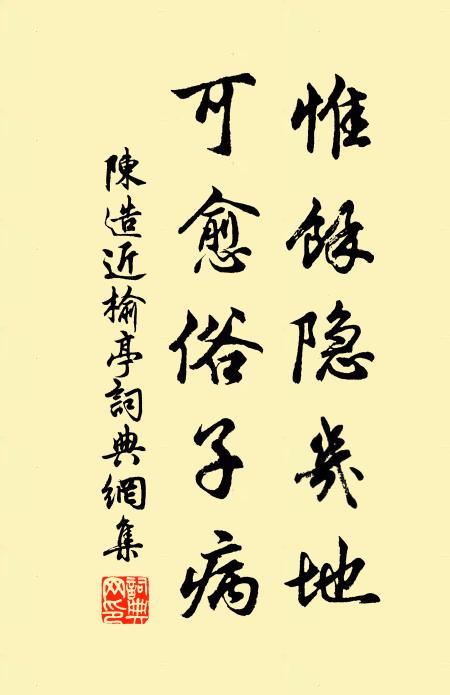 惟餘隐几地
可愈俗子病
陳造近榆亭詞典網集
詞典网印